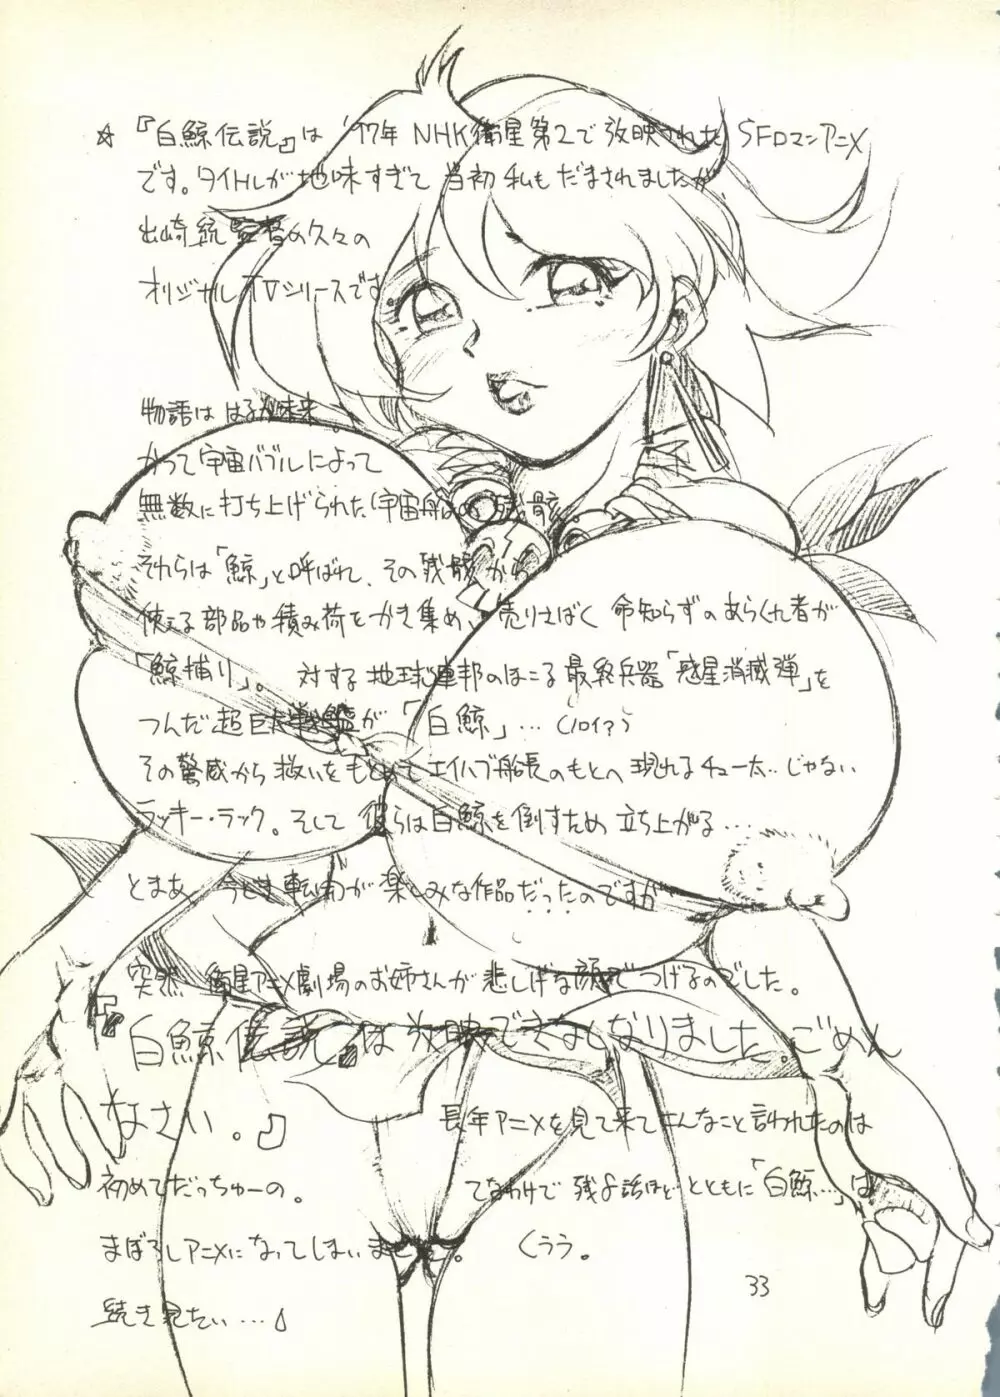 ☆『白鯨伝説』は '97年 NHK衛星第2で放映された SFロマンアニメ
です。タイトルが地味すぎて 当初 私も だまされましたが、
出崎 統 監督の久々の
オリジナルTVシリーズです
物語は はるか未来。
かつて宇宙バブルによって
無数に打ち上げられた宇宙船の残骸
それらは「鯨」と呼ばれ、その残骸から
使える部品や積み荷をかき集め、売りさばく 命知らずのあらくれ者が
「鯨捕り」。 対する 地球連邦のほこる 最終兵器「惑星消滅弾」を
つんだ超巨大戦艦が「白鯨」…
その驚威から 救いをもとめて エイハブ船長のもとへ 現れるチュー太‥じゃない
ラッキー・ラック。そして 彼らは白鯨を倒すため 立ち上がる…
とまあ、今どき 転がが 楽しみな作品だったのですが
突然 衛星アニメ劇場のお姉さんが 悲しげな顔でつげるのでした。
『『白鯨伝説』は放映できなくなりました。ごめん
なさい。』 長年アニメを見て来てこんなこと言われたのは
初めてだっちゅーの。 てなわけで 残8話ほど とともに「白鯨…」は
まぼろしアニメになってしまいました。 くうう。
続き見たい…
33